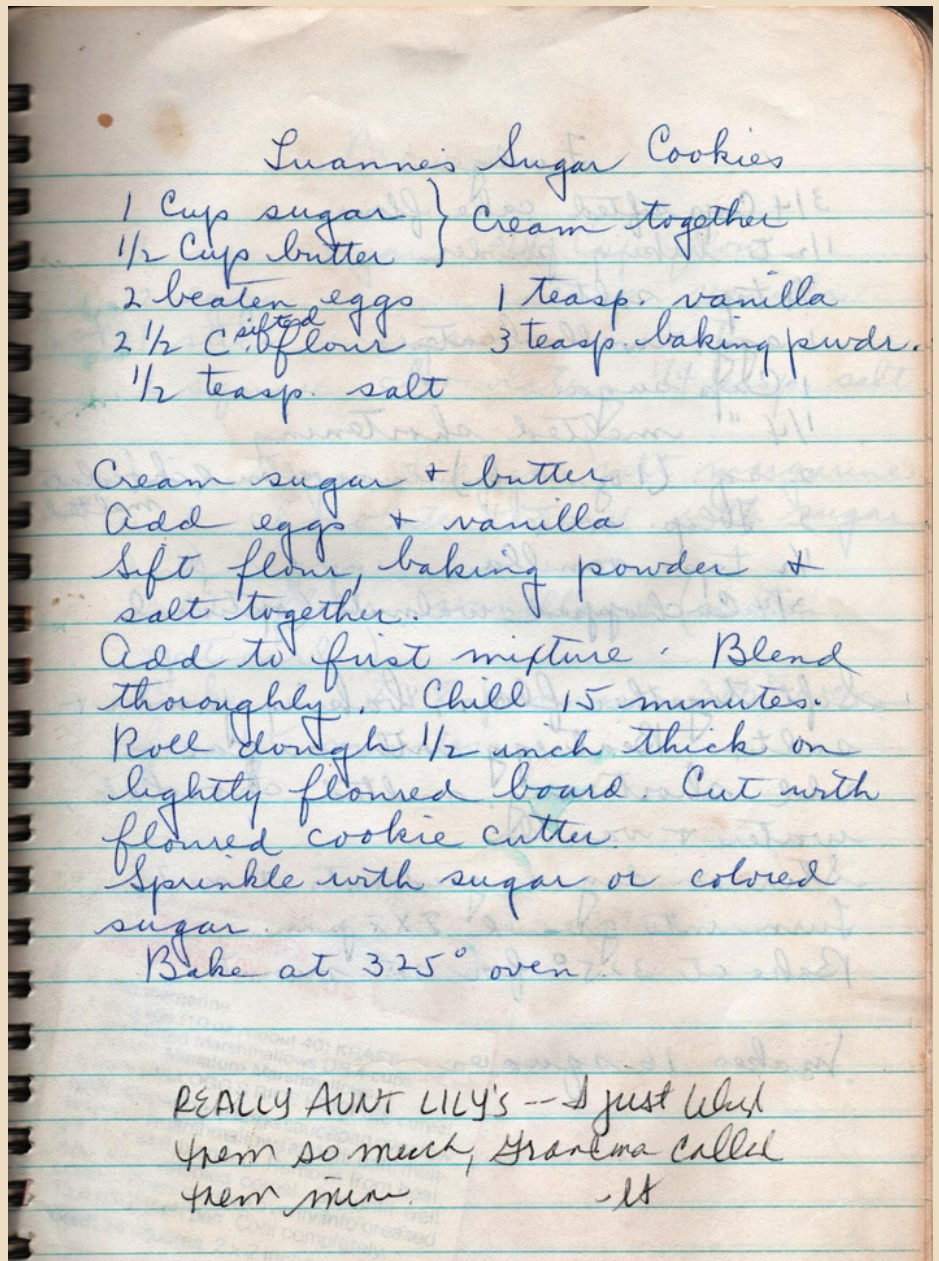 Luanne's Sugar Cookies
1 Cup sugar } Cream together
1/2 Cup butter
2 beaten eggs 1 teasp. vanilla
2 1/2 C. sifted flour 3 teasp. baking pwdr.
1/2 teasp. salt
Cream sugar + butter
Add eggs + vanilla
Sift flour, baking powder +
salt together.
Add to first mixture. Blend
thoroughly. Chill 15 minutes.
Roll dough 1/2 inch thick on
lightly floured board. Cut with
floured cookie cutter.
Sprinkle with sugar or colored
sugar.
Bake at 325° oven.
REALLY AUNT LILY'S -- I just liked
them so much, Grandma called
them mine. -